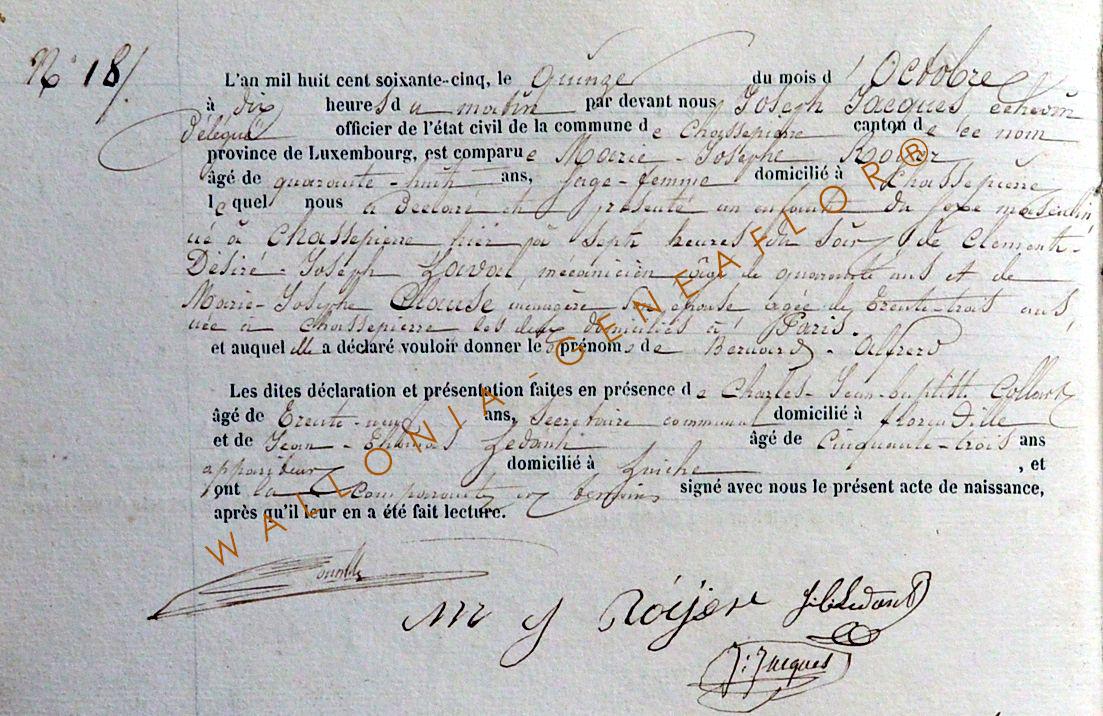 N° 18/
L'an mil huit cent soixante-cinq, le quinze du mois d'Octobre
à dix heures du matin par devant nous Joseph Jacques, echevin
Délégué officier de l'état civil de la commune de Chassepierre canton de ce nom
province de Luxembourg, est comparue Marie-Josephe
âgé de quarante-huit ans, sage-femme domicilié à Chassepierre
lequel nous a déclaré et présenté un enfant du sexe masculin
né à Chassepierre hier à sept heures du soir, de Clément-
Désiré-Joseph Laval, mécanicien âgé de quarante ans et de
Marie-Josephe Clause ménagère son épouse agée de trente-trois ans,
née à Chassepierre les deux domiciliés à Paris.
et auquel elle a déclaré vouloir donner les prénoms de Bernard-Alfred
Les dites déclaration et présentation faites en présence de Charles-Jean-baptiste Collard
âgé de trente-neuf ans, Secrétaire communal domicilié à florenville
et de Jean- Ledant âgé de cinquante-trois ans
appariteur domicilié à Laiche , et
ont la comparante et témoins signé avec nous le présent acte de naissance,
après qu'il leur en a été fait lecture.
M J Röijer
J: Jacques
WALLONIA-GENEAFLOR®